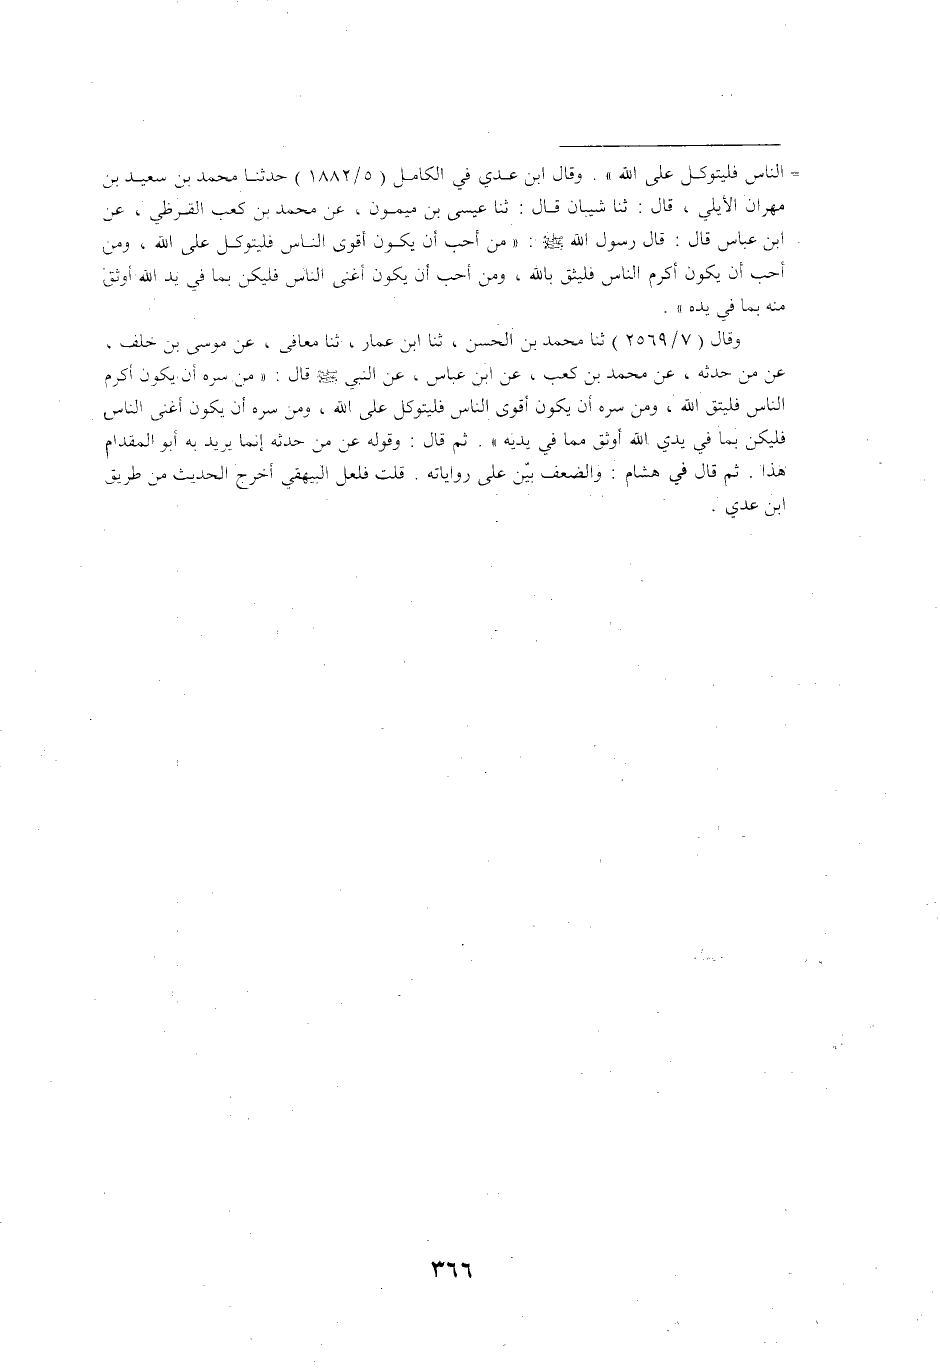 = الناس فليتوكل على الله » . وقال ابن عدي في الكامل ( ١٨٨٢/٥ ) حدثنا محمد بن سعيد بن
مهران الأيلي ، قال : ثنا شيبان قال : ثنا عيسى بن ميمون ، عن محمد بن كعب القرظي ، عن
ابن عباس قال : قال رسول الله ﷺ : « من أحب أن يكون أقوى الناس فليتوكل على الله ، ومن
أحب أن يكون أكرم الناس فليثق بالله ، ومن أحب أن يكون أغنى الناس فليكن بما في يد الله أوثق
منه بما في يده » .
وقال ( ٢٥٦٩/٧ ) ثنا محمد بن الحسن ، ثنا ابن عمار ، ثنا معافى ، عن موسى بن خلف ،
عن من حدثه ، عن محمد بن كعب ، عن ابن عباس ، عن النبي ﷺ قال : « من سره أن يكون أكرم
الناس فليتق الله ، ومن سره أن يكون أقوى الناس فليتوكل على الله ، ومن سره أن يكون أغنى الناس
فليكن بما في يدي الله أوثق مما في يديه » . ثم قال : وقوله عن من حدثه إنما يريد به أبو المقدام
هذا . ثم قال في هشام : والضعف بيّن على رواياته . قلت فلعل البيهقي أخرج الحديث من طريق
ابن عدي .
٣٦٦